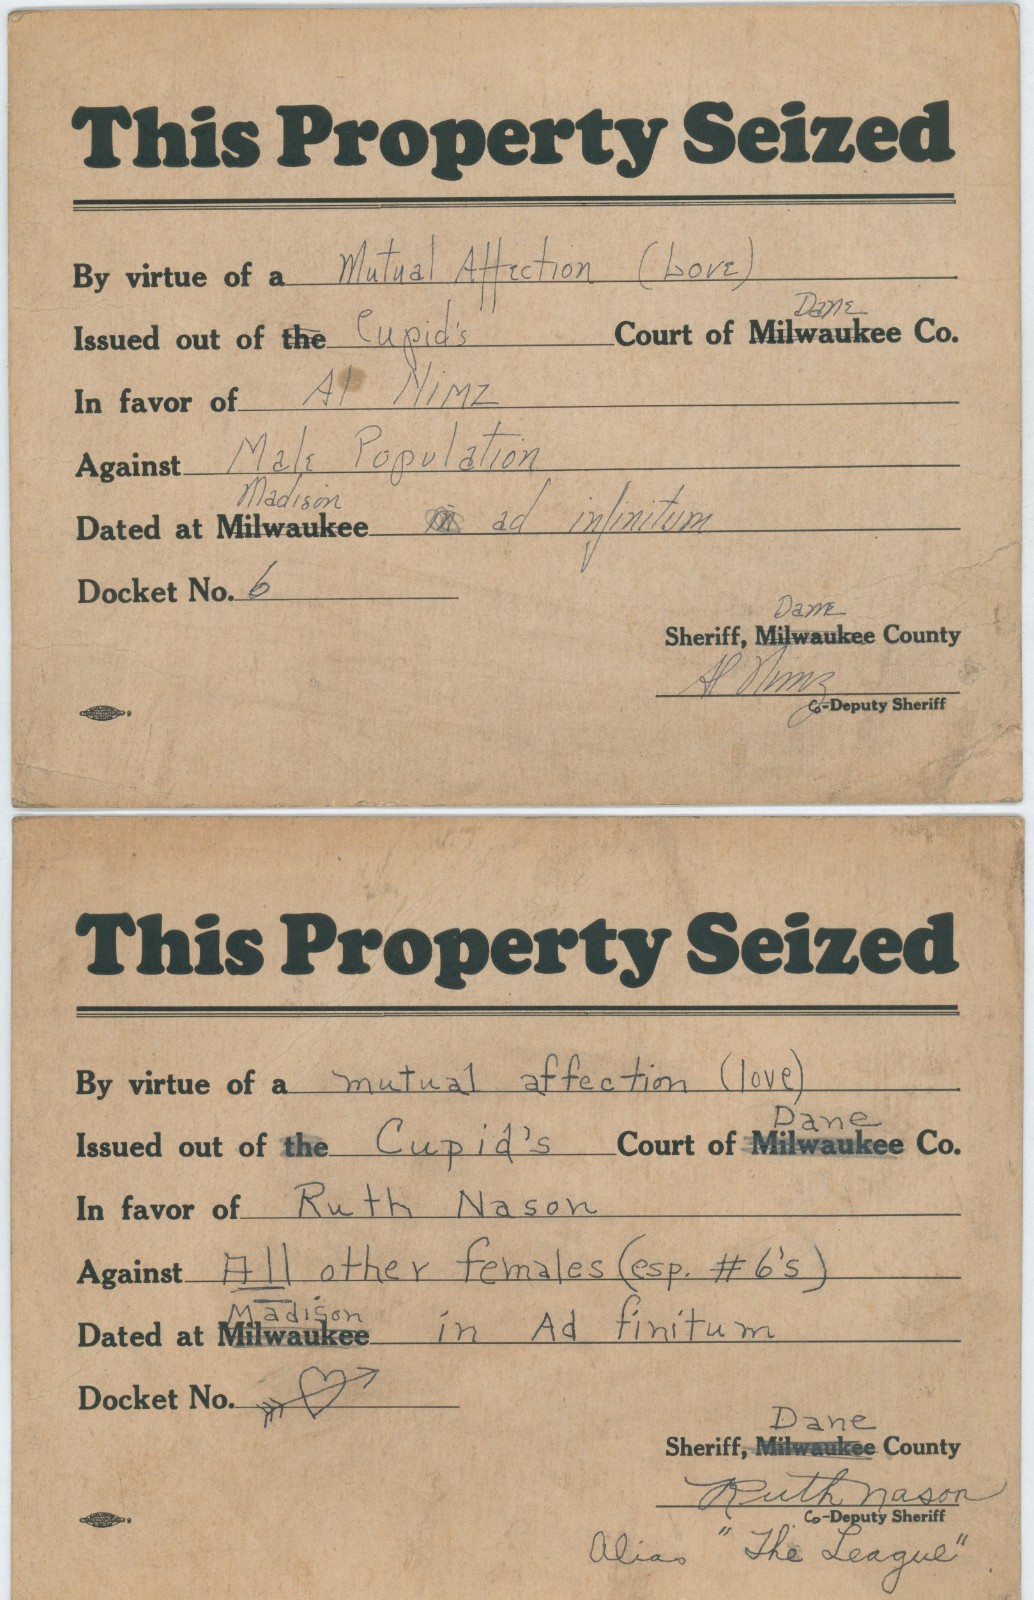 This Property Seized
By virtue of a Mutual Affection (Love)
Dane
Issued out of the Cupid's Court of Milwaukee Co.
In favor of Al Nimz
Against Male Population
Madison
Dated at Milwaukee in ad infinitum
Docket No. 6
Dane
Sheriff, Milwaukee County
Al Nimz
Co-Deputy Sheriff
This Property Seized
By virtue of a mutual affection (love)
Dane
Issued out of the Cupid's Court of Milwaukee Co.
In favor of Ruth Nason
Against All other females (esp. #6's)
Madison
Dated at Milwaukee in Ad finitum
Docket No.
Dane
Sheriff, Milwaukee County
Ruth Nason
Co-Deputy Sheriff
Alias "The League"